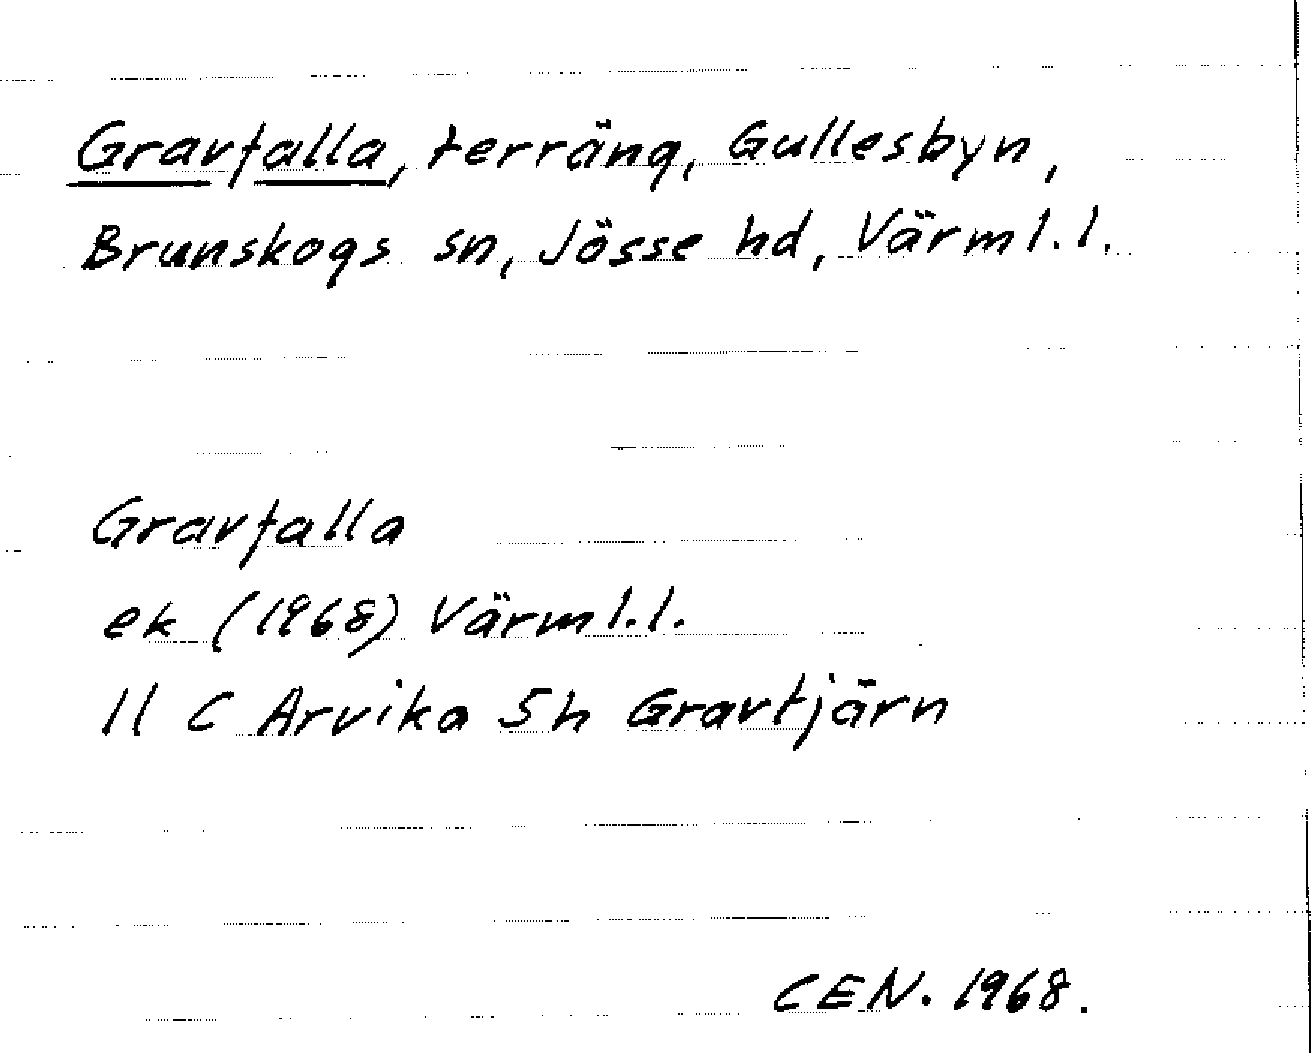 Gravfalla, terräng, Gullesbyn,
Brunskogs sn, Jösse hd, Värml. l.
Gravfalla
ek (1968) Värml. l.
11 C Arvika 5h Gravtjärn
CEN. 1968.